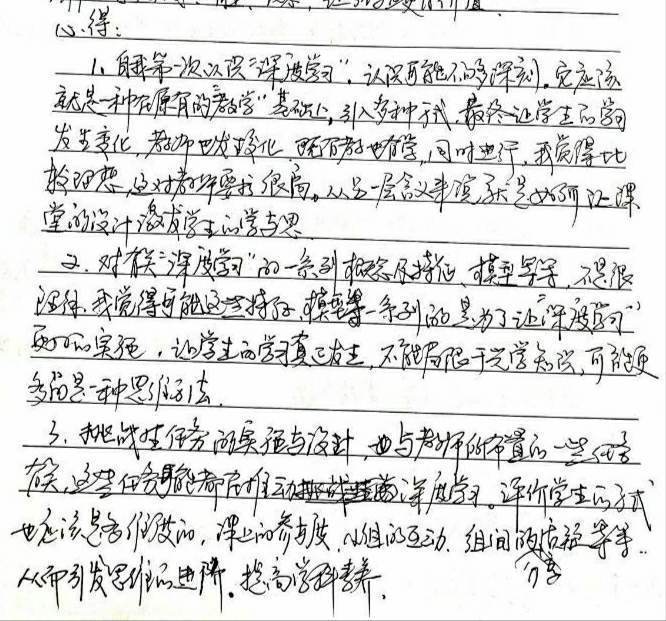 心得:
1. 自我第一次认识“深度学习”, 认识可能不够深刻, 它应该
就是一种在原有的“教学”基础上, 引入多种方式, 最终让学生的学习
发生变化, 教师也发生变化, 既有教也有学, 同时进行, 我觉得比
较理想, 这对教师要求很高。从另一层含义来说就是如何让课
堂的设计激发学生的学与思
2. 对有关“深度学习”的一系列概念及特征、模型等等, 不是很
理解, 我觉得可能这些特征、模型等一系列的是为了让“深度学习”
更好的实施, 让学生的学习真正发生, 不能局限于光学知识, 可能更
多的是一种思维方法.
3. 挑战性任务的实施与设计, 也与教师所布置的一些任务
有关, 这些任务能都在推动深度学习。评价学生的方式
也应该是多维度的, 课上的参与度, 小组的互动, 组间的 等等..
分享
从而引发思维的进阶, 提高学科素养.